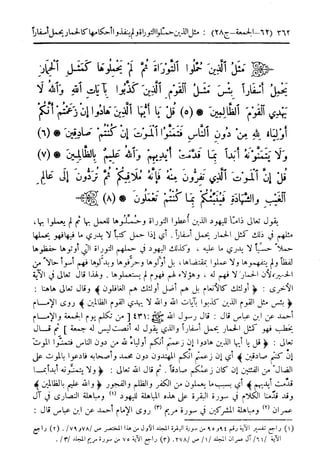 ٣٦٢ (٦٢ – الجمعة – ج٢٨) : مثل الذين حملوا التوراة ولم ينفذوا أحكامها كالحمار يحمل أسفاراً
مَثَلُ الَّذِينَ حُمِّلُوا التَّوْرَاةَ ثُمَّ لَمْ يَحْمِلُوهَا كَمَثَلِ الْحِمَارِ
يَحْمِلُ أَسْفَاراً بِئْسَ مَثَلُ الْقَوْمِ الَّذِينَ كَذَّبُوا بِآيَاتِ اللَّهِ وَاللَّهُ لَا
يَهْدِي الْقَوْمَ الظَّالِمِينَ * (٥) قُلْ يَا أَيُّهَا الَّذِينَ هَادُوا إِن زَعَمْتُمْ أَنَّكُمْ
أَوْلِيَاءُ لِلَّهِ مِنْ دُونِ النَّاسِ فَتَمَنَّوُا الْمَوْتَ إِن كُنتُمْ صَادِقِينَ * (٦)
وَلَا يَتَمَنَّوْنَهُ أَبَداً بِمَا قَدَّمَتْ أَيْدِيهِمْ وَاللَّهُ عَلِيمٌ بِالظَّالِمِينَ * (٧)
قُلْ إِنَّ الْمَوْتَ الَّذِي تَفِرُّونَ مِنْهُ فَإِنَّهُ مُلَاقِيكُمْ ثُمَّ تُرَدُّونَ إِلَى عَالِمِ
الْغَيْبِ وَالشَّهَادَةِ فَيُنَبِّئُكُم بِمَا كُنتُمْ تَعْمَلُونَ * (٨)
يقول تعالى ذاماً لليهود الذين أعطوا التوراة وحملوها للعمل بها ثم لم يعملوا بها،
مثلهم في ذلك كمثل الحمار يحمل أسفاراً. أي إذا حمل كتباً لا يدري ما فيها فهو يحملها
حملاً حسياً لا يدري ما عليه ، وكذلك اليهود في حملهم التوراة التي أوتوها حفظوها
لفظاً ولم يتفهموها ولا عملوا بمقتضاها، بل أولوها وحرفوها وبدلوها فهم أسوأ حالاً من
الحمير، لأن الحمار لا فهم له ، وهؤلاء لهم فهوم لم يستعملوها . ولهذا قال تعالى في الآية
الأخرى : ﴿ أولئك كالأنعام بل هم أضل أولئك هم الغافلون ﴾ وقال تعالى هاهنا :
﴿ بئس مثل القوم الذين كذبوا بآيات الله والله لا يهدي القوم الظالمين ﴾ وروى الإمام
أحمد عن ابن عباس قال : قال رسول الله ﷺ : ٤٣١] من تكلم يوم الجمعة والإمام
يخطب فهو كمثل الحمار يحمل أسفاراً والذي يقول له أنصت ليس له جمعة ] ثم قال
تعالى : ﴿ قل يا أيها الذين هادوا إن زعمتم أنكم أولياء لله من دون الناس فتمنوا الموت
إن كنتم صادقين ﴾ أي إن زعمتم أنكم المهتدون دون محمد وأصحابه فادعوا بالموت على
الضال من الفئتين إن كان زعمكم صادقاً . ثم قال الله تعالى : ﴿ ولا يتمنونه أبداً بما
قدمت أيديهم ﴾ أي بسبب ما يعملون من الكفر والظلم والفجور ﴿ والله عليم بالظالمين ﴾
وقد قدمنا الكلام في سورة البقرة على هذه المباهلة لليهود (١) ومباهلة النصارى في آل
عمران (٢) ومباهلة المشركين في سورة مريم (٣) روى الإمام أحمد عن ابن عباس قال :
(١) راجع تفسير الآية رقم ٩٤ و ٩٥ من سورة البقرة المجلد الأول من هذا المختصر ص /٧٨ و ٧٩/. (٢) راجع
الآية /٦١/ آل عمران المجلد /١/ ص /٢٧٨/. (٣) راجع الآية ٧٥ من سورة مريم المجلد /٣/.